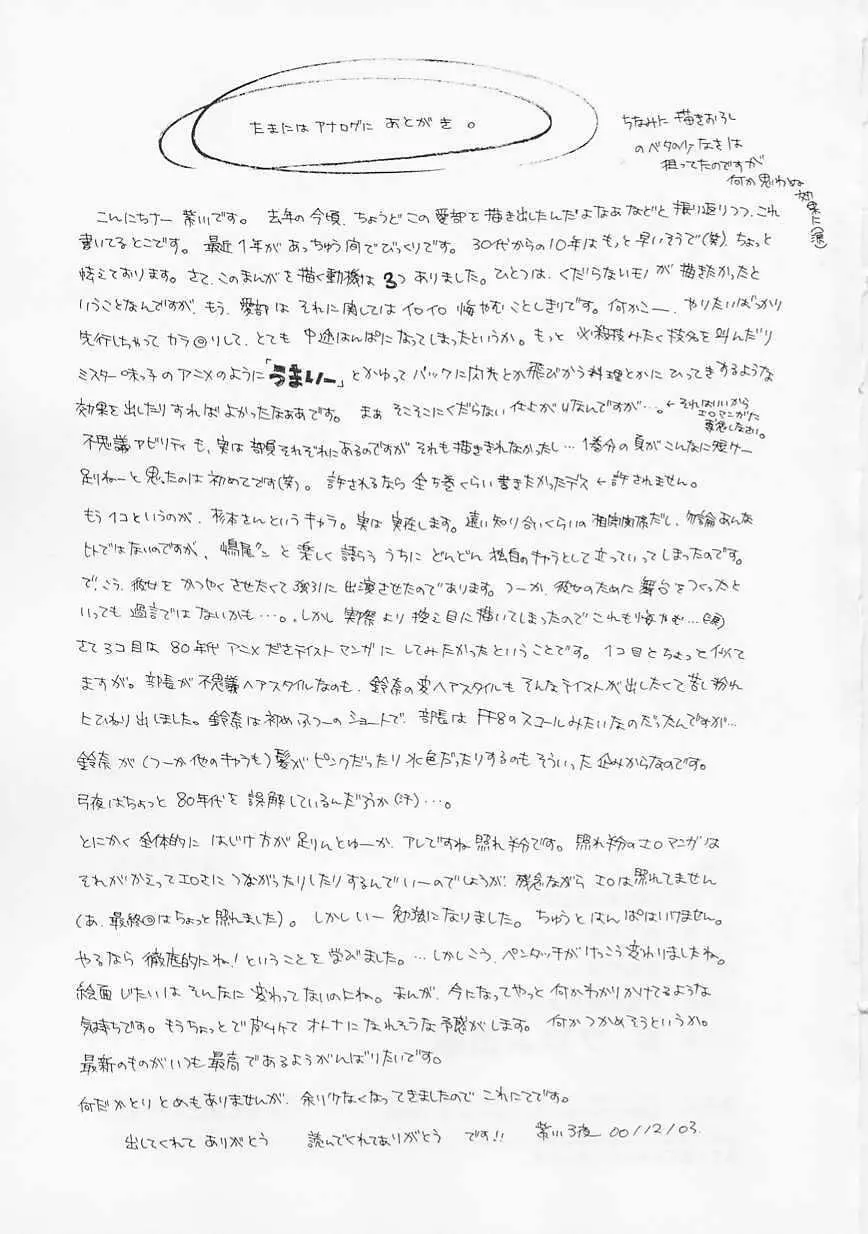 たまにはアナログに あとがき。
ちなみに 描きおろし
のベタのなさは
狙ってたのですが
何か思わぬ
効果に(涙)
こんにちはー 紫川です。 去年の今頃、ちょうどこの愛部を描き出したんだよなあなどと 振り返りつつ、これ
書いてるとこです。 最近1年があっちゅう間でびっくりです。 30代からの10年はもっと早いそうで(笑)、ちょっと
怯えております。さて、このまんがを描く動機は 3つ ありました。ひとつは、くだらないモノが描きたかったと
いうことなんですが、もう、愛部は それに関しては イロイロ 悔やむことしきりです。何かこー、やりたいばっかり
先行しちゃって カラ回りして、とても 中途はんぱになってしまったというか。もっと 必殺技みたく技名を叫んだり
ミスター味っ子のアニメのように「うまいー」とかゆって バックに閃光とか飛びかう料理とかに ひってきするような
効果を出したりすればよかったなぁあです。 まぁ そこそこにくだらない仕上がりなんですが…。 ← それはいいから
エロマンガだ
不思議アビリティも、実は 部員それぞれにあるのですが それも描ききれなかったし… 1巻分の頁がこんなに短けー
足りねーと思ったのは初めてです(笑)。 許されるなら 全5巻くらい書きたかったデス ← 許されません。
もう1コというのが、杉本さんというキャラ。実は 実在します。遠い知り合いくらいの 相関関係だし、勿論あんな
ヒトではないのですが、 と楽しく語らううちに どんどん 独自のキャラとして立っていってしまったのです。
で、こう、彼女を かつやくさせたくて 強引に 出演させたのであります。つーか、彼女のために 舞台をつくったと
いっても 過言ではないかも…。しかし 実際より 控え目に描いてしまったので これも悔やむ…(涙)
さて3コ目は 80年代 アニメださテイストマンガに してみたかったということです。 1コ目とちょっと似て
ますが。部長が 不思議ヘアスタイルなのも、鈴奈の変ヘアスタイルも そんなテイストが出したくて 苦し紛れ
にひねり出しました。鈴奈は初めふつーのショートで、部長は FF8のスコールみたいなのだったんですが…
鈴奈が(つーか他のキャラも)髪がピンクだったり 水色だったりするのもそういった 企みからなのです。
弓夜はちょっと 80年代を 誤解しているんだろうか(汗)…。
とにかく 全体的に はじけ方が 足りんとゅーか、アレですね 照れ半分です。 照れ半分のエロマンガは
それがかえってエロさに つながったりしたりするんでいーのでしょうが、残念ながら エロは照れてません
(あ、最終回はちょっと照れました)。 しかし いー 勉強になりました。ちゅうとはんぱはいけません。
やるなら 徹底的にね! ということを 学びました。… しかしこう、ペンタッチがけっこう変わりましたね。
絵画じたいは そんなに 変わってないのにね。まんが、今になってやっと 何かわかりかけてるような
気持ちです。もうちょっとで 剥けて オトナに なれそうな予感がします。 何かつかめそうというか。
最新のものがいつも最高であるようがんばりたいです。
何だかとりとめもありませんが、余りなくなってきましたので これにてです。
出してくれて ありがとう 読んでくれてありがとう です!! 紫川弓夜 00/12/03